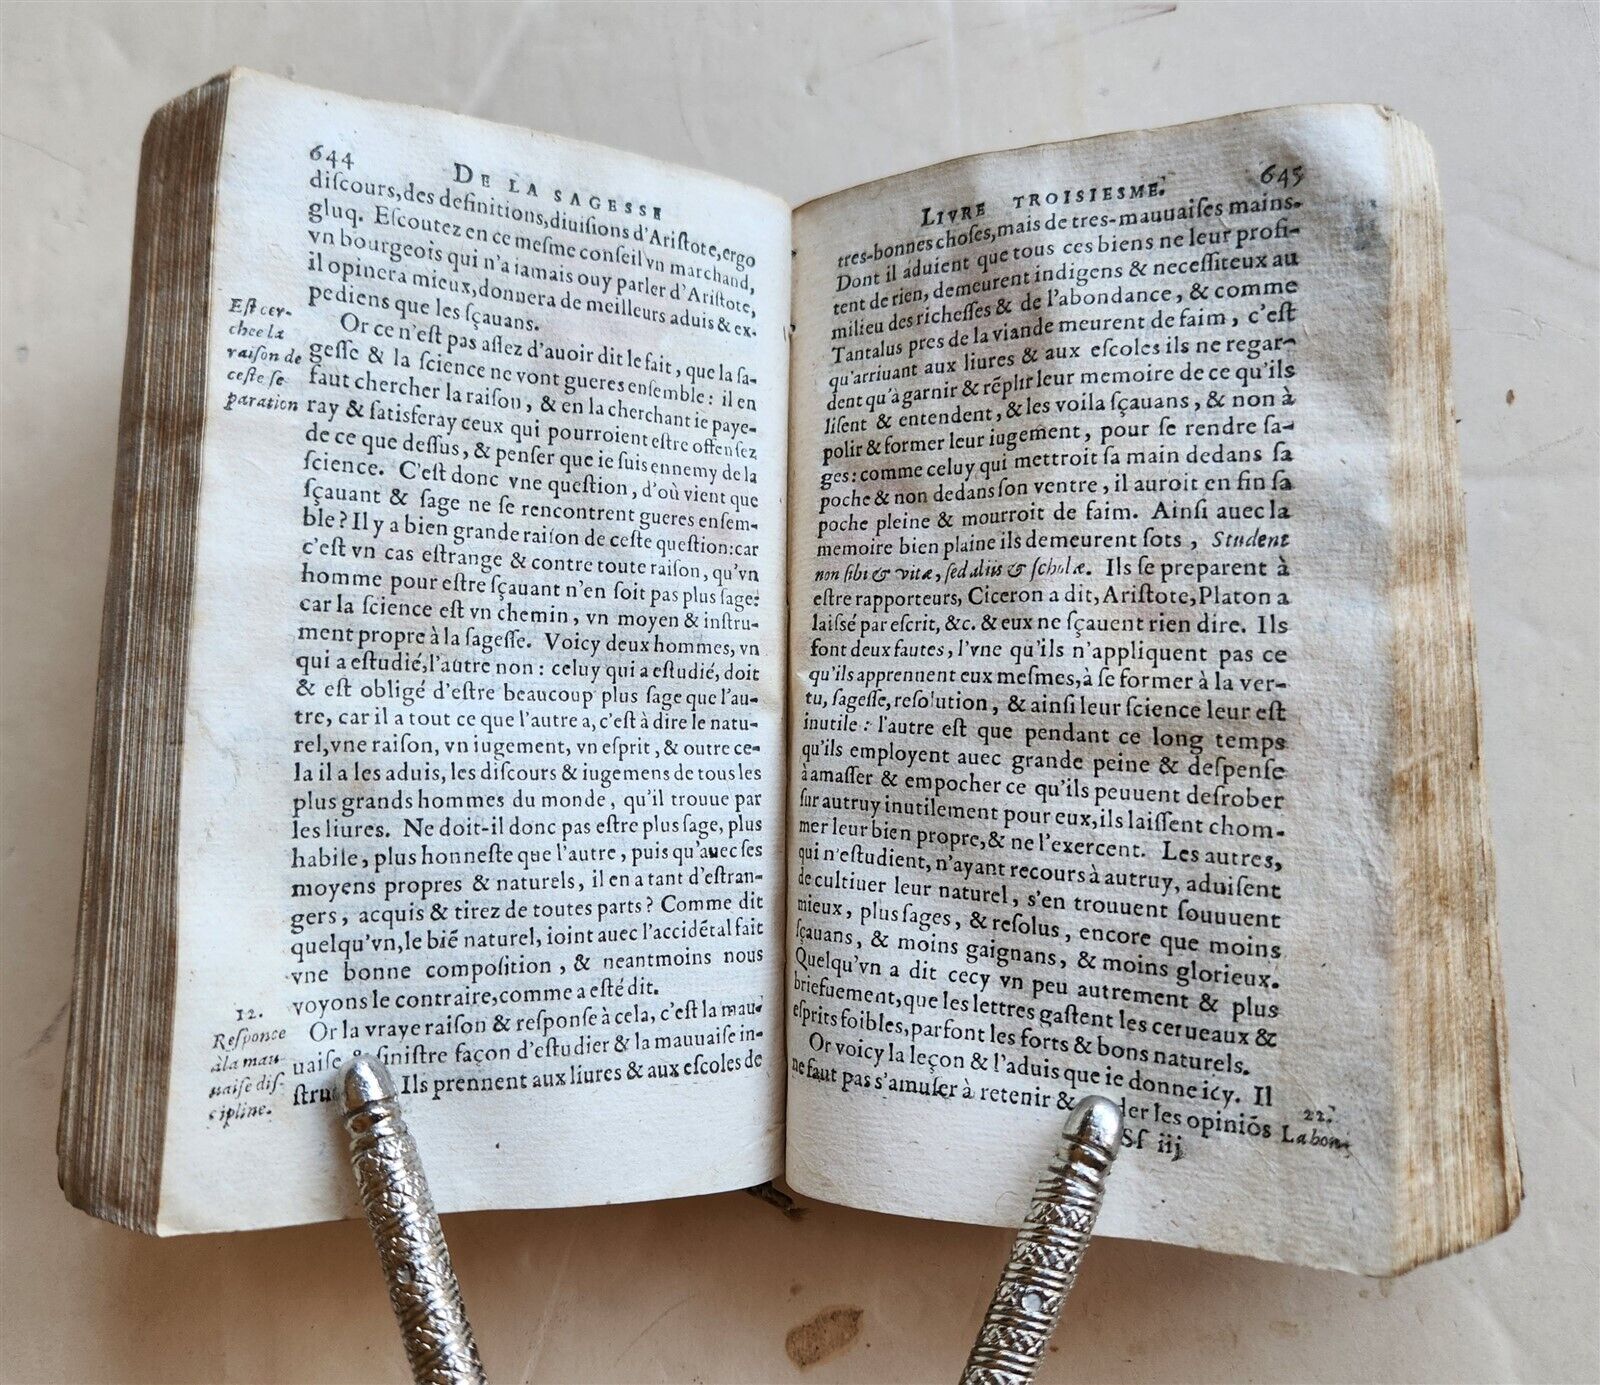 644
DE LA SAGESSE
diſcours,des definitions,diuiſions d'Ariſtote,ergo
gluq. Eſcoutez en ce meſme conſeil vn marchand,
vn bourgeois qui n'a iamais ouy parler d'Ariſtote,
il opinera mieux,donnera de meilleurs aduis & ex-
pediens que les ſçauans.
Or ce n'eſt pas aſſez d'auoir dit le fait, que la ſa-
geſſe & la ſcience ne vont gueres enſemble : il en
faut chercher la raiſon, & en la cherchant ie paye-
ray & ſatisferay ceux qui pourroient eſtre offenſez
de ce que deſſus, & penſer que ie ſuis ennemy de la
ſcience. C'eſt donc vne queſtion, d'où vient que
ſçauant & ſage ne ſe rencontrent gueres enſem-
ble? Il y a bien grande raiſon de ceſte queſtion:car
c'eſt vn cas eſtrange & contre toute raiſon, qu'vn
homme pour eſtre ſçauant n'en ſoit pas plus ſage:
car la ſcience eſt vn chemin, vn moyen & inſtru-
ment propre à la ſageſſe. Voicy deux hommes, vn
qui a eſtudié,l'autre non : celuy qui a eſtudié, doit
& eſt obligé d'eſtre beaucoup plus ſage que l'au-
tre, car il a tout ce que l'autre a, c'eſt à dire le natu-
rel,vne raiſon, vn iugement, vn eſprit, & outre ce-
la il a les aduis, les diſcours & iugemens de tous les
plus grands hommes du monde, qu'il trouue par
les liures. Ne doit-il donc pas eſtre plus ſage, plus
habile, plus honneſte que l'autre, puis qu'auec ſes
moyens propres & naturels, il en a tant d'eſtran-
gers, acquis & tirez de toutes parts? Comme dit
quelqu'vn,le biẽ naturel, ioint auec l'accidẽtal fait
vne bonne compoſition, & neantmoins nous
voyons le contraire,comme a eſté dit.
Or la vraye raiſon & reſponſe à cela, c'eſt la mau-
uaiſe & ſiniſtre façon d'eſtudier & la mauuaiſe in-
Ils prennent aux liures & aux eſcoles de
Eſt cer-
chee la
raiſon de
ceſte ſe
paration
12.
Reſponce
à la mau-
uaiſe diſ-
cipline.
LIVRE TROISIESME.
645
tres-bonnes choſes,mais de tres-mauuaiſes mains.
Dont il aduient que tous ces biens ne leur profi-
tent de rien, demeurent indigens & neceſſiteux au
milieu des richeſſes & de l'abondance, & comme
Tantalus pres de la viande meurent de faim, c'eſt
qu'arriuant aux liures & aux eſcoles ils ne regar-
dent qu'à garnir & rẽplir leur memoire de ce qu'ils
liſent & entendent, & les voila ſçauans, & non à
polir & former leur iugement, pour ſe rendre ſa-
ges: comme celuy qui mettroit ſa main dedans ſa
poche & non dedans ſon ventre, il auroit en fin ſa
poche pleine & mourroit de faim. Ainſi auec la
memoire bien plaine ils demeurent ſots, Student
non ſibi & vitæ, ſed aliis & ſcholæ. Ils ſe preparent à
eſtre rapporteurs, Ciceron a dit, Ariſtote, Platon a
laiſſé par eſcrit, &c. & eux ne ſçauent rien dire. Ils
font deux fautes, l'vne qu'ils n'appliquent pas ce
qu'ils apprennent eux meſmes, à ſe former à la ver-
tu, ſageſſe, reſolution, & ainſi leur ſcience leur eſt
inutile : l'autre eſt que pendant ce long temps
qu'ils employent auec grande peine & deſpenſe
à amaſſer & empocher ce qu'ils peuuent deſrober
ſur autruy inutilement pour eux,ils laiſſent chom-
mer leur bien propre,& ne l'exercent. Les autres,
qui n'eſtudient, n'ayant recours à autruy, aduiſent
de cultiuer leur naturel, s'en trouuent ſouuuent
mieux, plus ſages, & reſolus, encore que moins
ſçauans, & moins gaignans, & moins glorieux.
Quelqu'vn a dit cecy vn peu autrement & plus
briefuement,que les lettres gaſtent les cerueaux &
eſprits foibles,parfont les forts & bons naturels.
Or voicy la leçon & l'aduis que ie donne icy. Il
ne faut pas s'amuſer à retenir & les opiniõs
Sſ iij
22.
La bon-